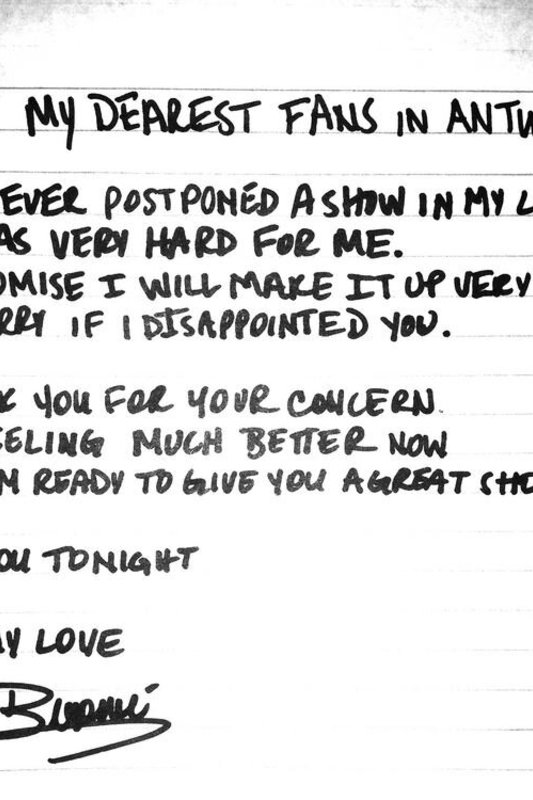 MY DEAREST FANS IN ANTW
EVER POSTPONED A SHOW IN MY L
AS VERY HARD FOR ME.
OMISE I WILL MAKE IT UP VERY
RRY IF I DISAPPOINTED YOU.
K YOU FOR YOUR CONCERN.
EELING MUCH BETTER NOW
M READY TO GIVE YOU A GREAT SHO
OU TONIGHT
MY LOVE